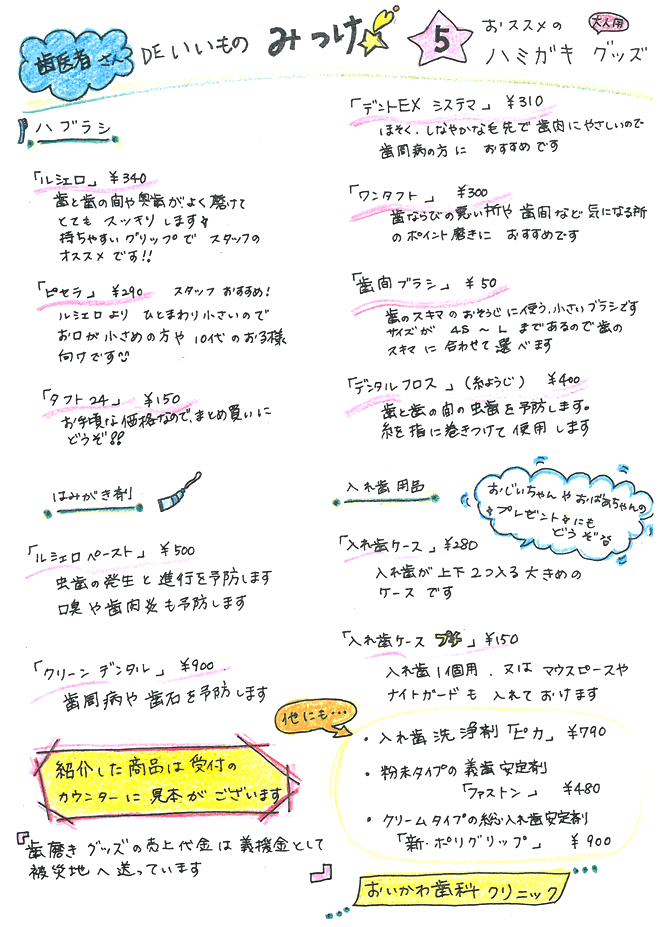 歯医者さん DEいいもの みっけ 5 おススメの 大人用
ハミガキ グッズ
ハブラシ
「ルシェロ」 ¥340
歯と歯の間や奥歯がよく磨けて
とても スッキリします
持ちやすいグリップで スタッフの
オススメです!!
「ピセラ」 ¥290 スタッフ おすすめ!
ルシェロより ひとまわり小さいので
お口が小さめの方や 10代のお子様
向けです
「タフト24」 ¥150
お手頃な価格なので、まとめ買いに
どうぞ!!
はみがき剤
「ルシェロペースト」 ¥500
虫歯の発生と進行を予防します
口臭や歯肉炎も予防します
「クリーンデンタル」 ¥900
歯周病や歯石を予防します
紹介した商品は受付の
カウンターに見本がございます
歯磨きグッズの売上代金は義援金として
被災地へ送っています
「デントEX システマ」 ¥310
ほそく、しなやかな毛先で歯肉にやさしいので
歯周病の方に おすすめです
「ワンタフト」 ¥300
歯ならびの悪い所や歯間など気になる所
のポイント磨きに おすすめです
「歯間ブラシ」 ¥50
歯のスキマのおそうじに使う、小さいブラシです
サイズが 4S～L まであるので歯の
スキマに合わせて選べます
「デンタルフロス」(糸ようじ) ¥400
歯と歯の間の虫歯を予防します。
糸を指に巻きつけて使用します
入れ歯用品
おじいちゃんやおばあちゃんの
プレゼントにも
どうぞ
「入れ歯ケース」 ¥280
入れ歯が上下2つ入る大きめの
ケースです
「入れ歯ケース プチ」 ¥150
入れ歯1個用、又はマウスピースや
ナイトガードも入れておけます
他にも…
・入れ歯洗浄剤「ピカ」 ¥790
・粉末タイプの義歯安定剤
「ファストン」 ¥480
・クリームタイプの総入れ歯安定剤
「新・ポリグリップ」 ¥900
おいかわ歯科クリニック